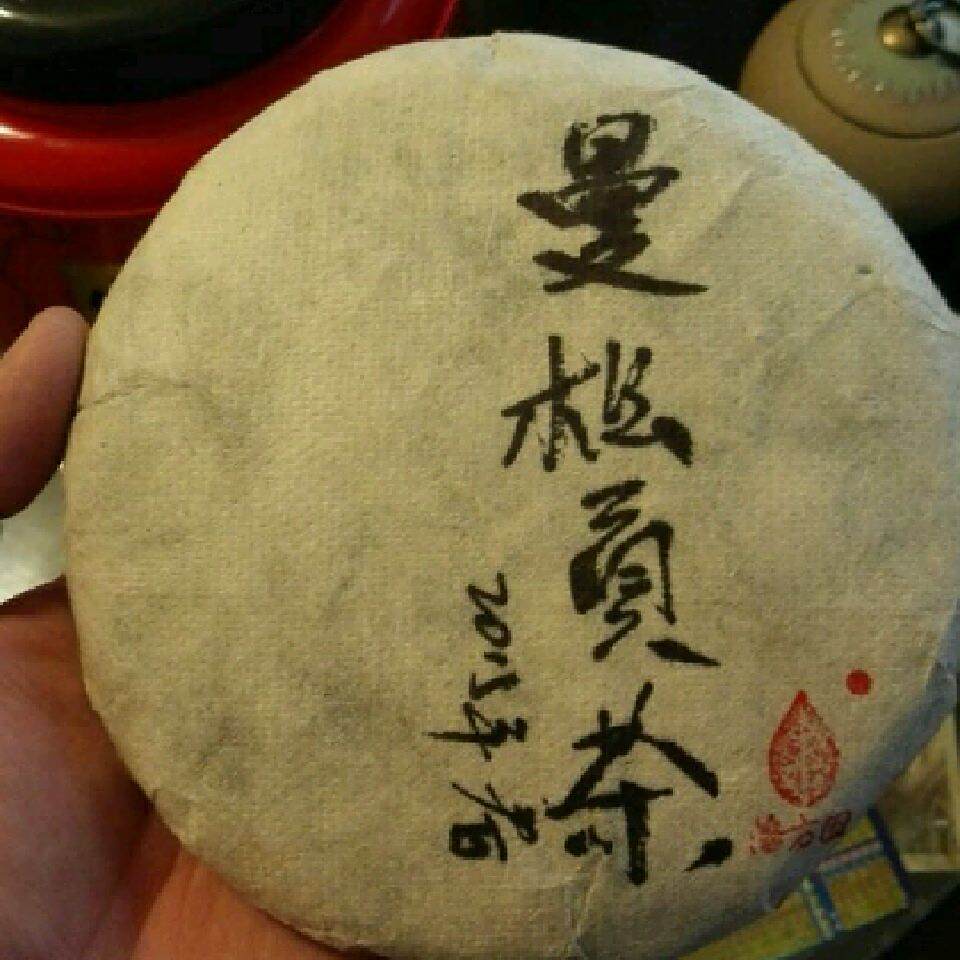 曼松贡茶
2015年春